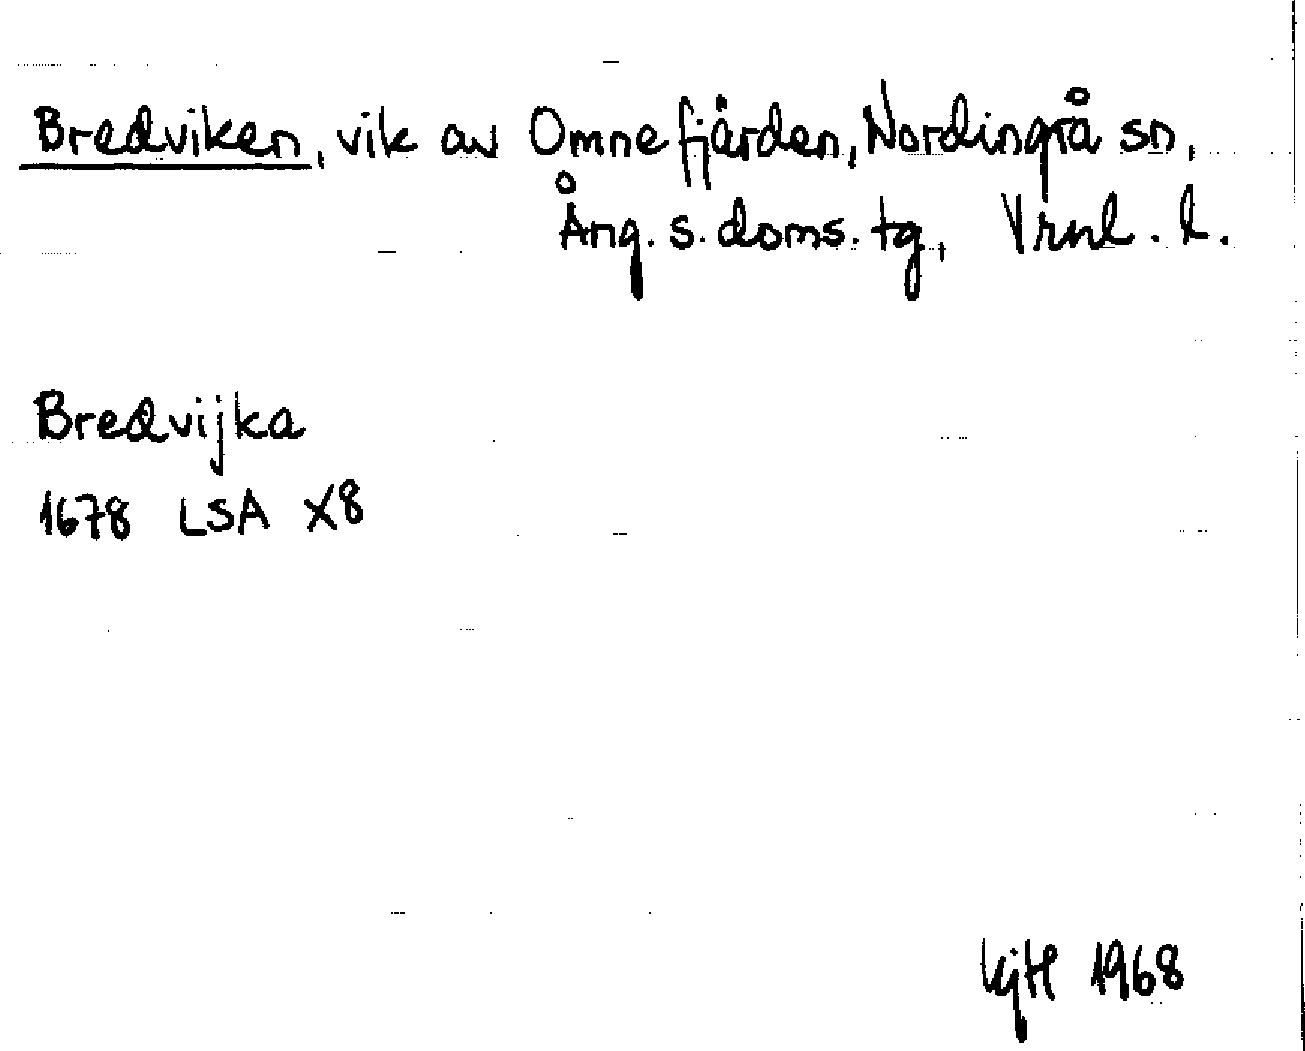 Bredviken, vik av Omnefjärden, Nordingrå sn,
Ång. s. doms. tg, Vrnl. l.
Bredvijka
1678 LSA X8
KjH 1968